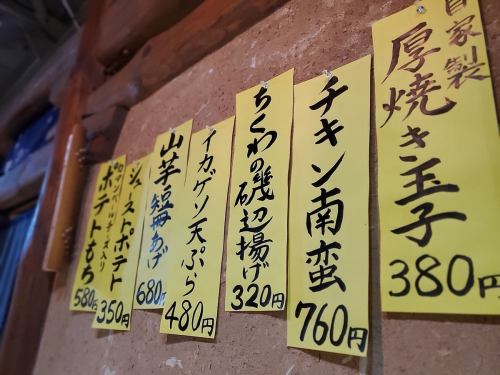 自家製
厚焼き玉子
380円
チキン南蛮
760円
ちくわの磯辺揚げ
320円
イカゲソ天ぷら
480円
山芋短冊あげ
680円
シューストポテト
350円
カマンベールチーズ入り
ポテトもち
580円